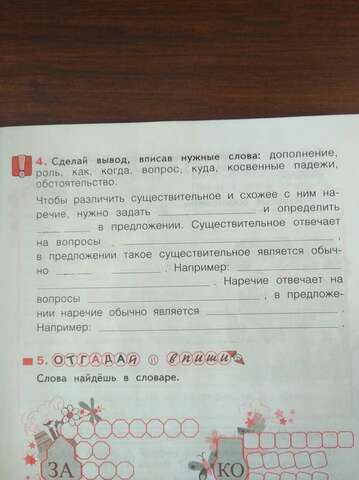 4. Сделай вывод, вписав нужные слова: дополнение,
роль, как, когда, вопрос, куда, косвенные падежи,
обстоятельство.
Чтобы различить существительное и схожее с ним на-
речие, нужно задать и определить
в предложении. Существительное отвечает
на вопросы ,
в предложении такое существительное является обыч-
но . Например:
. Наречие отвечает на
вопросы , в предложе-
нии наречие обычно является .
Например:
5. ОТГАДАЙ и впиши
Слова найдёшь в словаре.
ЗА КО